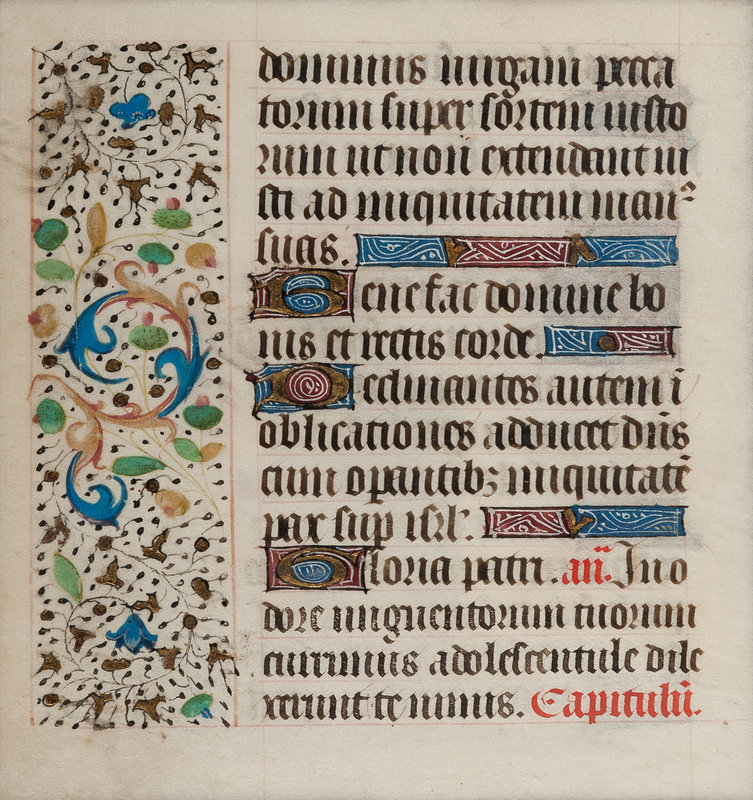 dominus uirgam pecca
torum super sortem iusto
rum ut non̄ extendant iu
sti ad iniquitatem man⁹
suas.
Bene fac domine bo
nis et rectis corde.
Declinantes autem ī
obligationes adducet dn̄s
cum operantibꝫ iniquitatē
pax sup isrl'.
Gloria patri. an̄. In o
dore unguentorum tuorum
currimus adolescentule dile
xerunt te nimis. Capitulū.